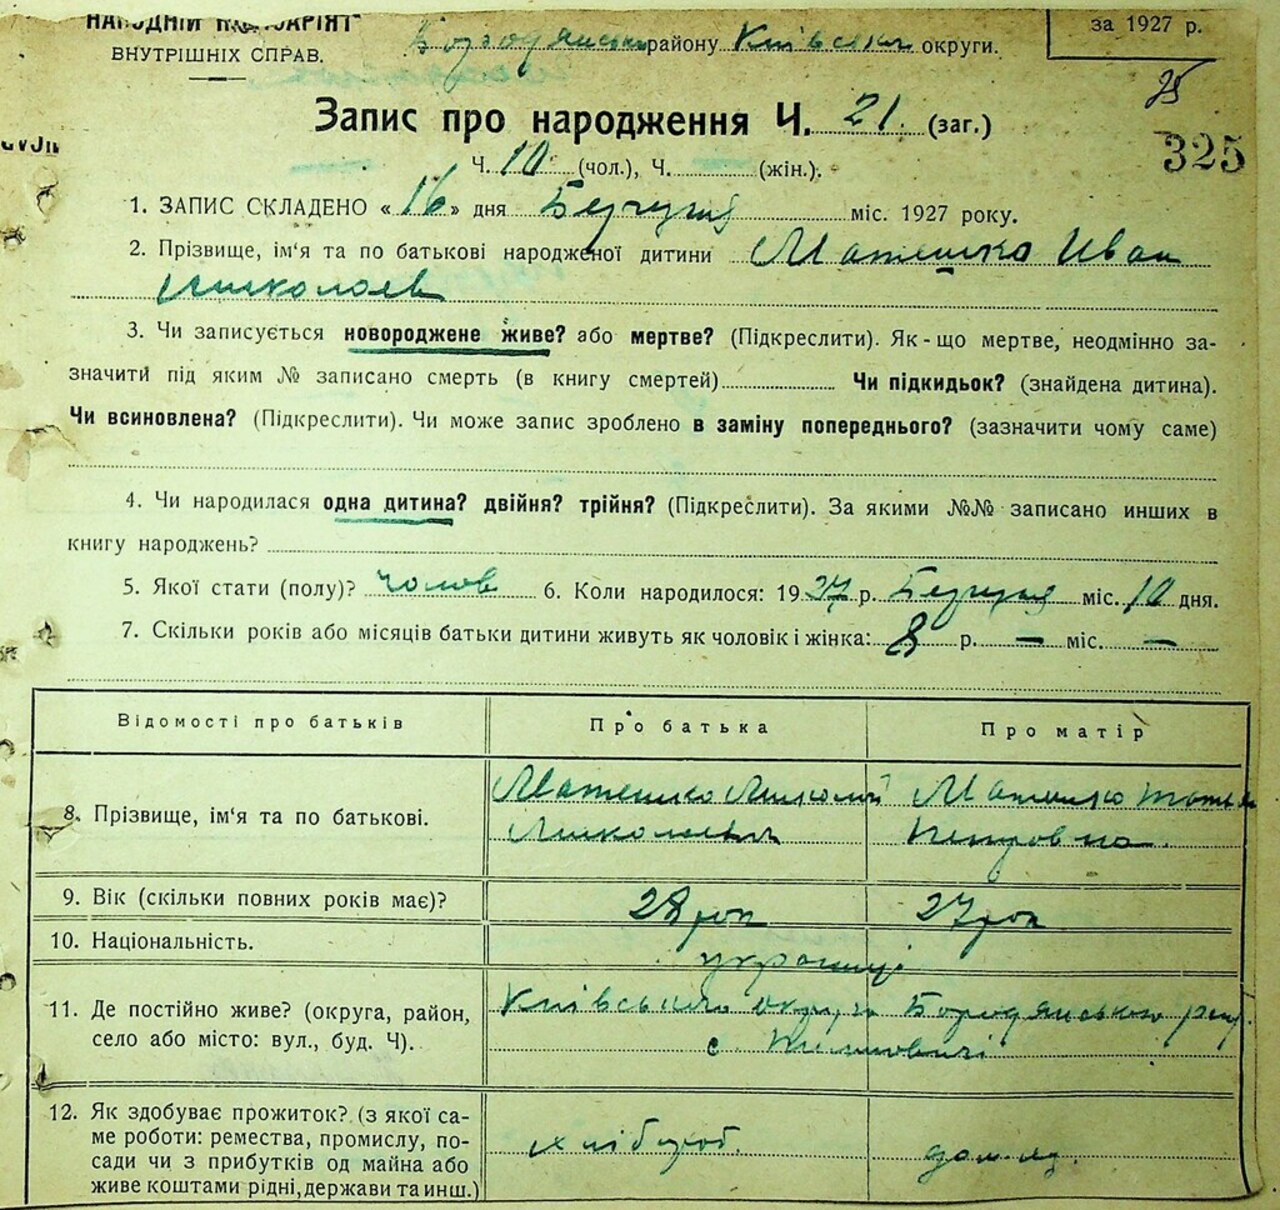 НАРОДНІЙ КОМІСАРІЯТ
ВНУТРІШНІХ СПРАВ.
Бородянського району Київської округи.
за 1927 р.
25
325
Запис про народження Ч. 21. (заг.)
Ч. 10 (чол.), Ч. — (жін.).
1. ЗАПИС СКЛАДЕНО «16» дня Березня міс. 1927 року.
2. Прізвище, ім'я та по батькові народженої дитини Матешко Иван
Миколаев
3. Чи записується новороджене живе? або мертве? (Підкреслити). Як-що мертве, неодмінно за-
значити під яким № записано смерть (в книгу смертей) Чи підкидьок? (знайдена дитина).
Чи всиновлена? (Підкреслити). Чи може запис зроблено в заміну попереднього? (зазначити чому саме)
4. Чи народилася одна дитина? двійня? трійня? (Підкреслити). За якими №№ записано инших в
книгу народжень?
5. Якої стати (полу)? чолов 6. Коли народилося: 1927 р. Березня міс. 10 дня.
7. Скільки років або місяців батьки дитини живуть як чоловік і жінка: 8 р. — міс. —
Відомості про батьків
Про батька
Про матір
8. Прізвище, ім'я та по батькові.
Матешко Миколай
Миколаевич
Матешко Татьян
Петровна.
9. Вік (скільки повних років має)?
28 рок
27 рок
10. Національність.
українці
11. Де постійно живе? (округа, район,
село або місто: вул., буд. Ч).
Київського округа Бородянського рай.
с.
12. Як здобуває прожиток? (з якої са-
ме роботи: ремества, промислу, по-
сади чи з прибутків од майна або
живе коштами рідні, держави та инш.)
хлібороб.